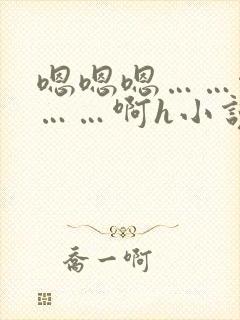 嗯嗯嗯……
……啊h小
喬一啊